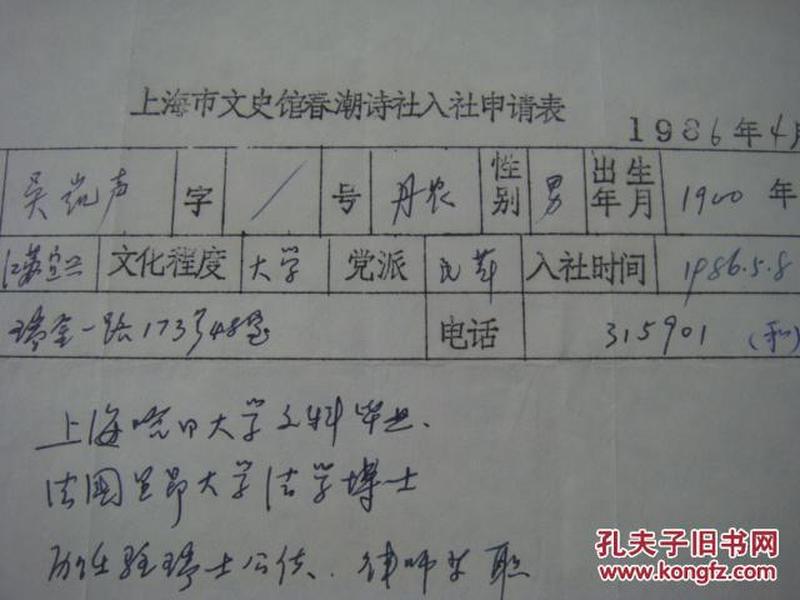 上海市文史馆春潮诗社入社申请表
1986年4月
吴凯声 字 / 号 丹农 性别 男 出生年月 1900年
江苏宜兴 文化程度 大学 党派 民革 入社时间 1986.5.8
瑞金一路173号48室 电话 315901 (私)
上海哈同大学文科毕业、
法国里昂大学法学博士
历任驻瑞士公使、律师等职
孔夫子旧书网
www.kongfz.com